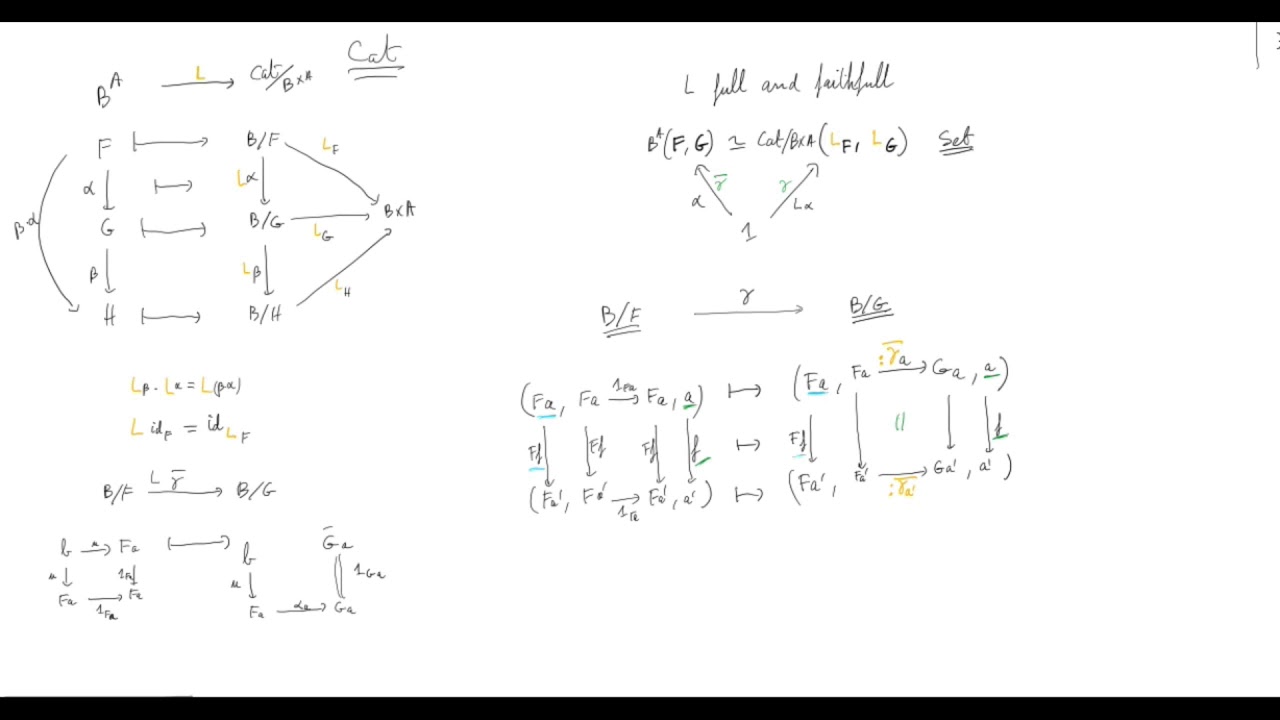 Cat
B^A —L→ Cat/B×A
F ⟼ B/F L_F
α ⟼ Lα
βα G ⟼ B/G L_G B×A
β Lβ
H ⟼ B/H L_H
Lβ · Lα = L(βα)
L id_F = id_{L_F}
B/F —L γ̄→ B/G
b —u→ Fa ⟼ b Ḡa
u 1Fa u 1Ga
Fa —1Fa→ Fa Fa —αa→ Ga
L full and faithfull
B^A(F, G) ≃ Cat/B×A(L_F, L_G) Set
α γ̄ γ Lα
1
B/F —γ→ B/G
(Fa, Fa —1Fa→ Fa, a) ⟼ (Fa, Fa —:γ̄a→ Ga, a)
Ff Ff Ff f ⟼ Ff = f
(Fa', Fa' —1Fa→ Fa', a') ⟼ (Fa', Fa' —:γ̄a'→ Ga', a')